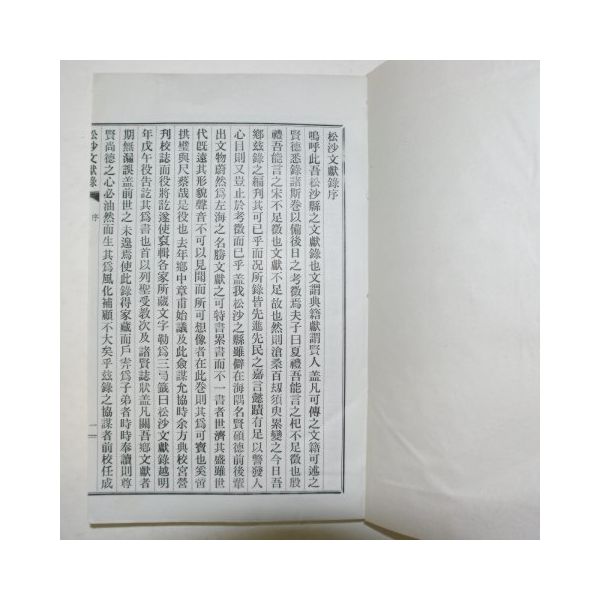 松沙文獻錄序
嗚呼此吾松沙縣之文獻錄也文謂典籍獻謂賢人盖凡可傳之文籍可述之
賢德悉錄諸斯卷以備後日之考徵焉夫子曰夏禮吾能言之杞不足徵也殷
禮吾能言之宋不足徵也文獻不足故也然則滄桑百刼須臾累變之今日吾
鄉玆錄之編刋其可已乎而况所錄皆先進先民之嘉言懿蹟有足以警發人
心目則又豈止於考徵而已乎盖我松沙之縣雖僻在海隅名賢碩德前後輩
出文物蔚然爲左海之名勝文獻之可特書累書而不一書者世濟其盛雖世
代旣遠其形貌聲音不可以見聞而所可想像者在此卷則其爲可寶也奚啻
拱璧與尺蔡哉是役也去年鄉中章甫始議及此僉謀允協時余方典校宮營
刋校誌而役將訖遂使裒輯各家所藏文字勒爲三弓籖曰松沙文獻錄越明
年戊午役告訖其爲書也首以列聖受敎次及諸賢誌狀盖凡關吾鄉文獻者
期無漏誤盖前世之未遑焉使此錄得家藏而戶弆爲子弟者時時奉讀則尊
賢尚德之心必油然而生其爲風化補顧不大矣乎玆錄之協謀者前校任成
松沙文獻錄
序
一